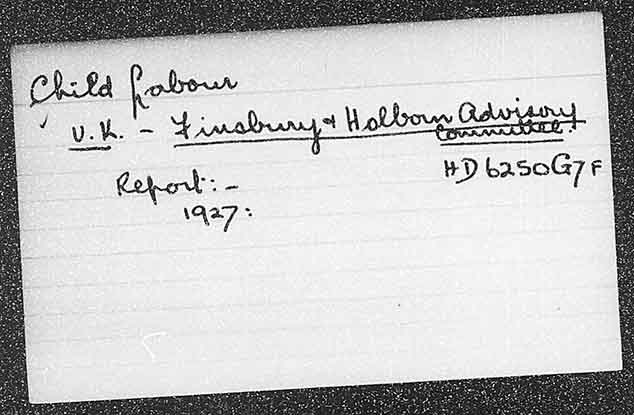 Child Labour
U.K. - Finsbury & Holborn Advisory
Committee.
Report:-
HD6250G7F
1927: